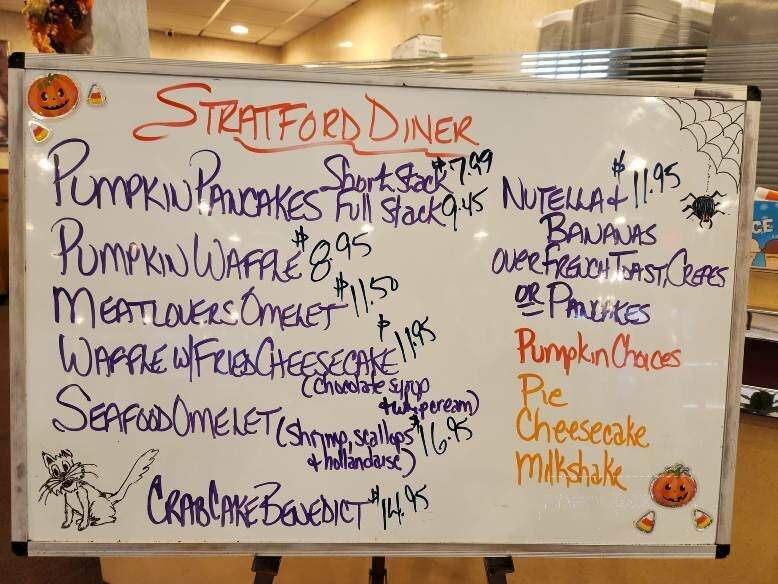 STRATFORD DINER
PUMPKIN PANCAKES Short Stack $7.99
Full Stack 9.45
PUMPKIN WAFFLE $8.95
MEATLOVERS OMELET $11.50
WAFFLE W/FRIED CHEESECAKE $11.95
(chocolate syrup
+ whipcream)
SEAFOOD OMELET (shrimp, scallops $16.95
+ hollandaise)
CRABCAKE BENEDICT $14.95
NUTELLA + $11.95
BANANAS
OVER FRENCH TOAST, CREPES
OR PANCAKES
Pumpkin Choices
Pie
Cheesecake
Milkshake
CE